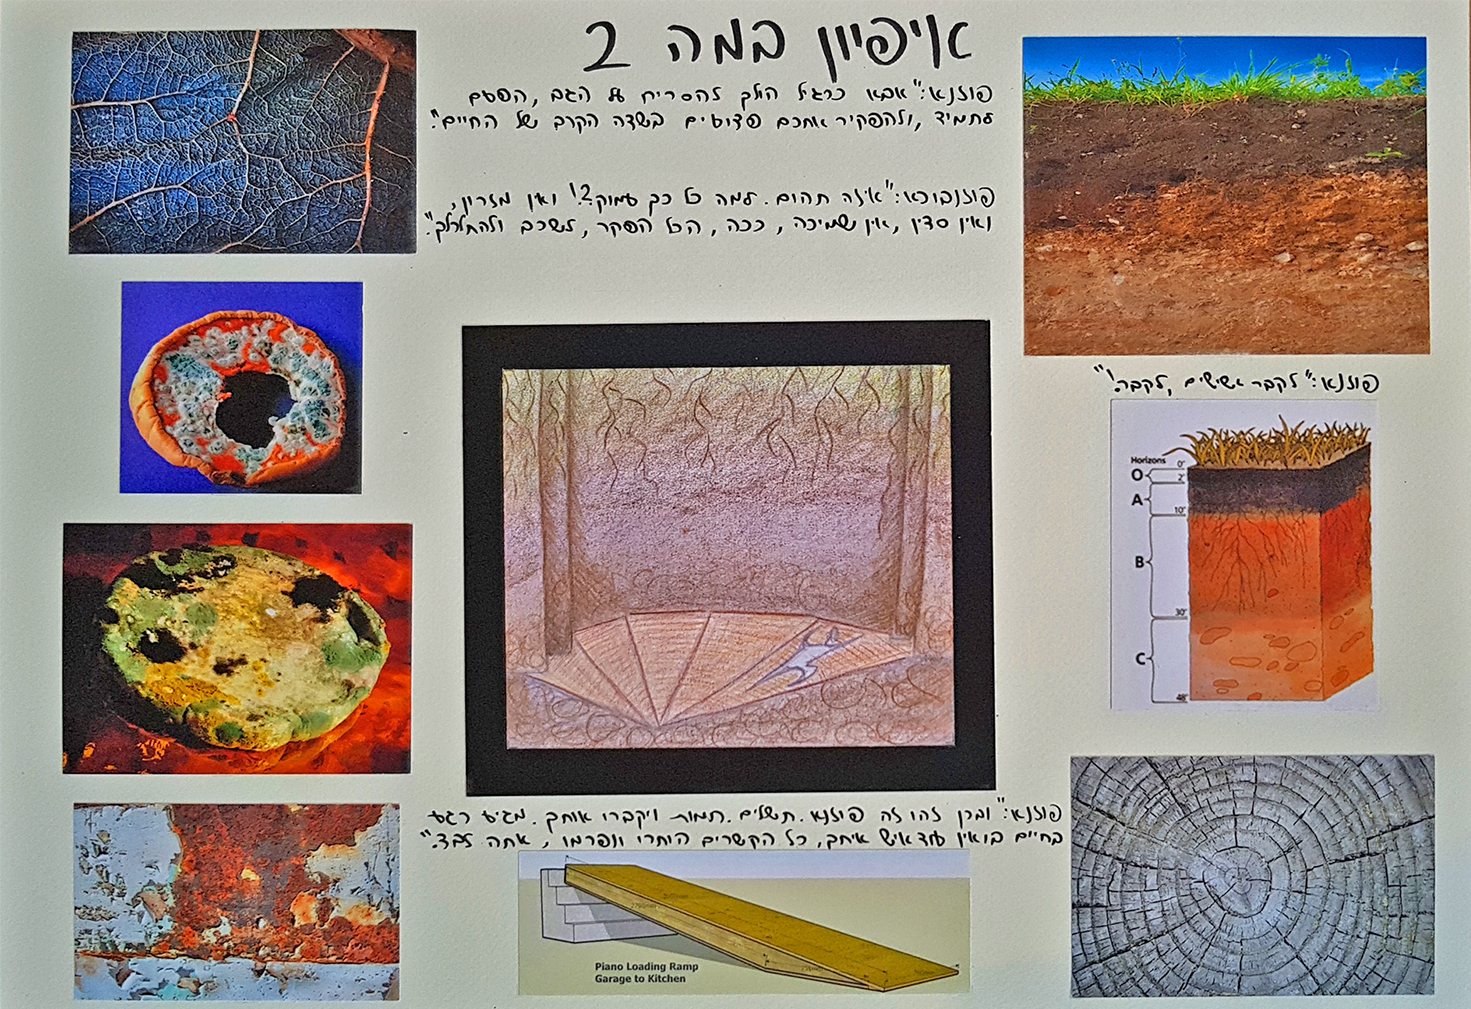 איפיון במה 2
פוזנא: "אבא כרגיל הולך להסריח על הגב, הפעם
לתמיד, ולהפקיר אותכם פצועים בשדה הקרב של החיים".
פוזנבוכא: "איזה תהום. למה כל כך עמוק?! ואין מזרון,
ואין סדין, אין שמיכה, ככה, הכל הפקר, לשכב ולהתלכלך".
פוזנא: "לקבר אשישים, לקבר!"
Horizons
0"
O
2"
A
10"
B
30"
C
48"
פוזנא: "ובכן זהו זה פוזנא. תשלים. תמות ויקברו אותך. מגיע רגע
בחיים בו אין עוד איש איתך, כל הקשרים הותרו ונפרמו, אתה לבד."
Piano Loading Ramp
Garage to Kitchen